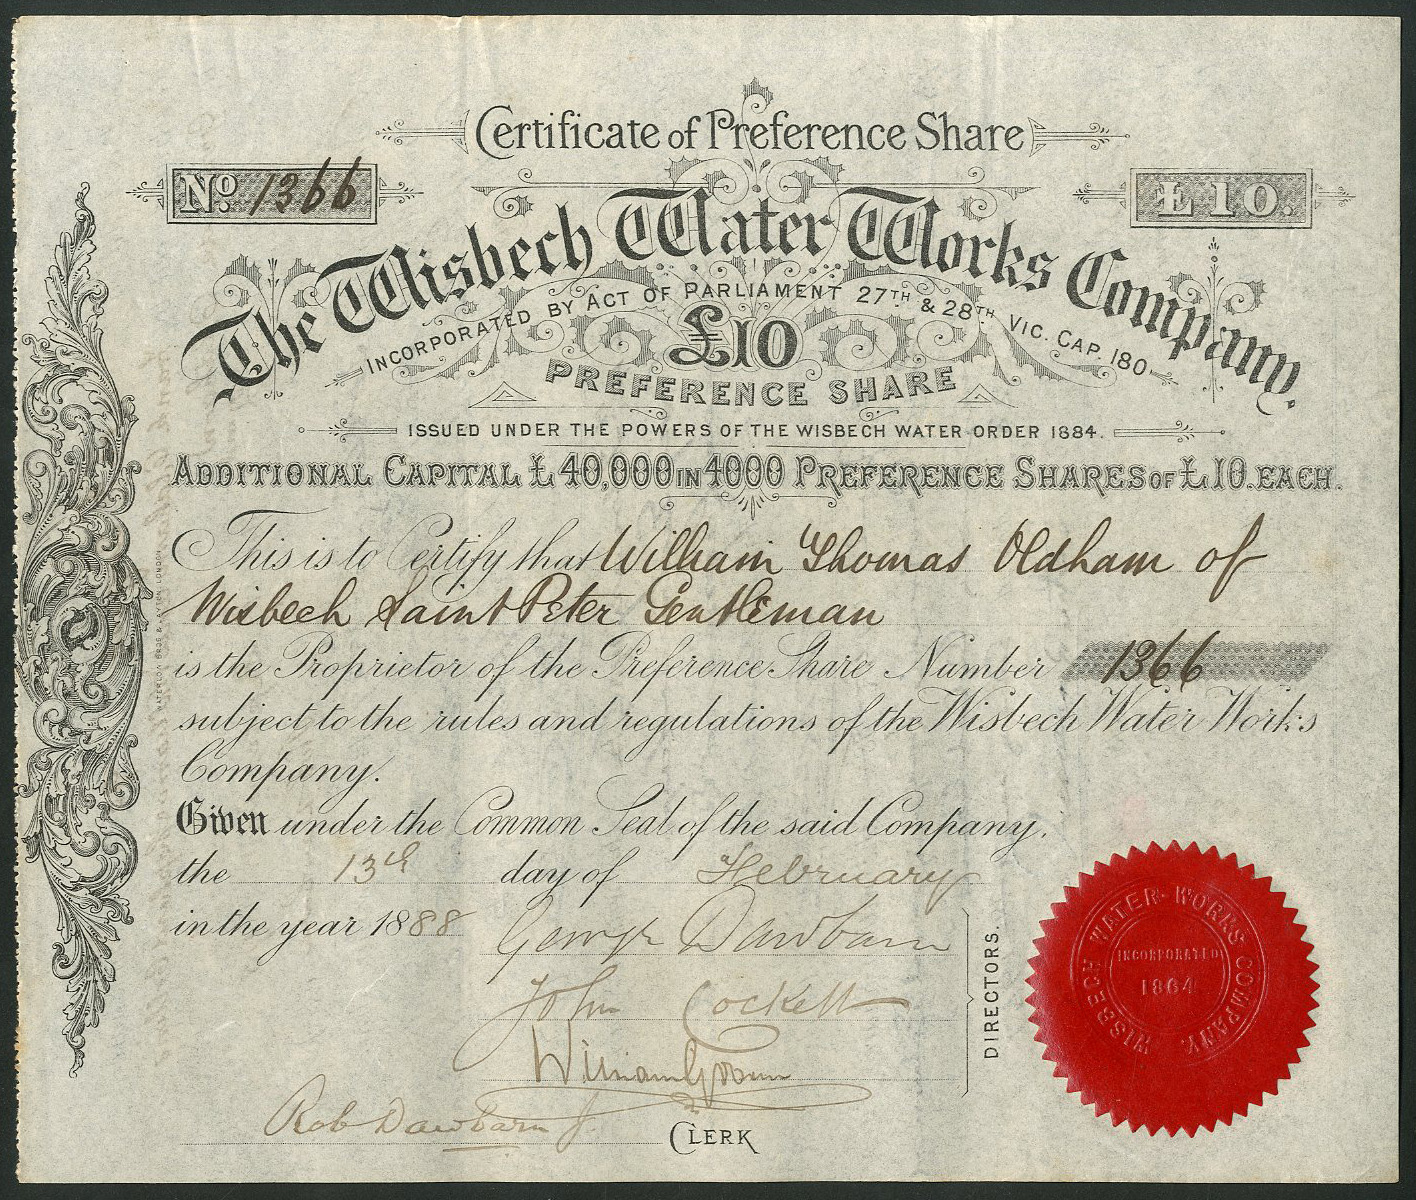 Certificate of Preference Share
No. 1366
£10.
The Wisbech Water Works Company.
INCORPORATED BY ACT OF PARLIAMENT 27TH & 28TH VIC. CAP. 180
£10
PREFERENCE SHARE
ISSUED UNDER THE POWERS OF THE WISBECH WATER ORDER 1884.
ADDITIONAL CAPITAL £40,000 IN 4000 PREFERENCE SHARES OF £10. EACH.
This is to Certify that William Thomas Oldham of
Wisbech Saint Peter Gentleman
is the Proprietor of the Preference Share Number 1366
subject to the rules and regulations of the Wisbech Water Works
Company.
Given under the Common Seal of the said Company.
the 13th day of February
in the year 1888
George Dawbarn
John Cockett
William
DIRECTORS.
Rob Dawbarn Jr
CLERK
WISBECH WATER WORKS COMPANY.
INCORPORATED
1864
WATERLOW BROS & LAYTON, LONDON